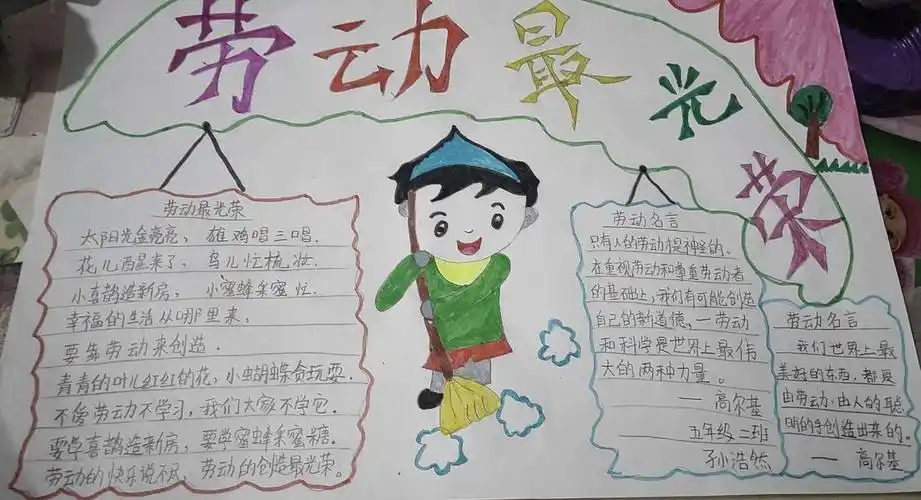 劳动最光荣
劳动最光荣
太阳光金亮亮，雄鸡唱三唱.
花儿醒来了，鸟儿忙梳妆.
小喜鹊造新房，小蜜蜂采蜜忙.
幸福的生活从哪里来，
要靠劳动来创造.
青青的叶儿红红的花，小蝴蝶贪玩耍.
不爱劳动不学习，我们大家不学它.
要学喜鹊造新房，要学蜜蜂采蜜糖.
劳动的快乐说不尽，劳动的创造最光荣。
劳动名言
只有人的劳动才是神圣的.
在重视劳动和尊重劳动者
的基础上，我们有可能创造
自己的新道德，一劳动
和科学是世界上最伟
大的两种力量。
——高尔基
五年级二班
孙浩然
劳动名言
我们世界上最
美好的东西，都是
由劳动.由人的聪
明的手创造出来的.
——高尔基